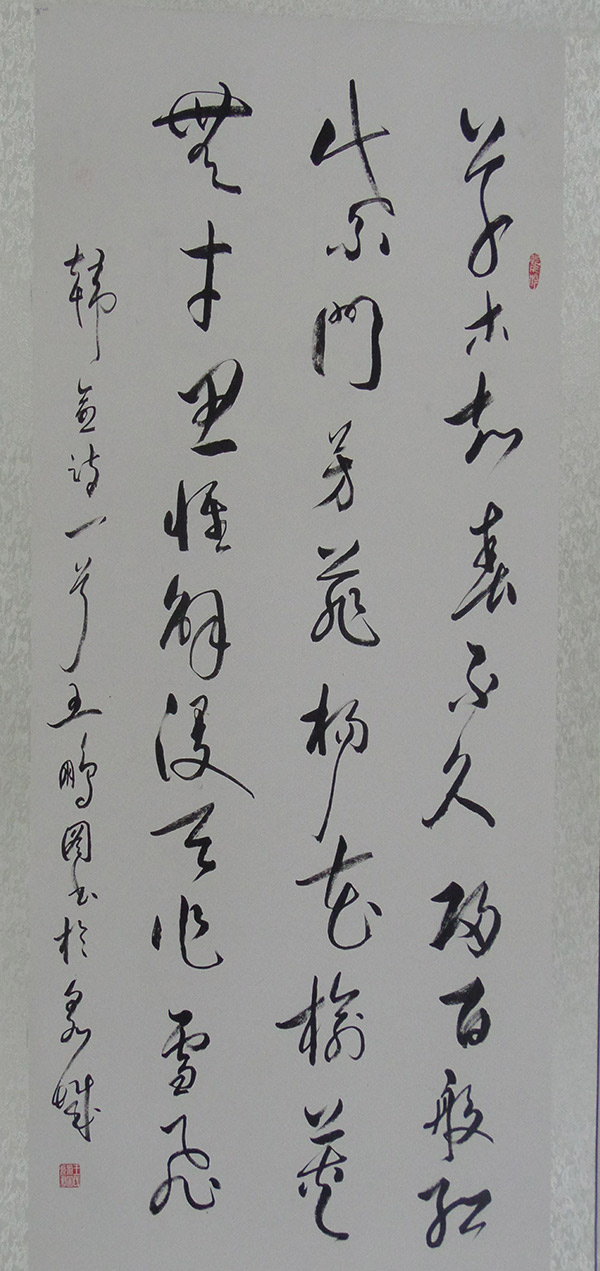 草木知春不久歸百般紅
紫鬥芳菲楊花榆莢
無才思惟解漫天作雪飛
韓愈詩一首王鵬圖書於泉城